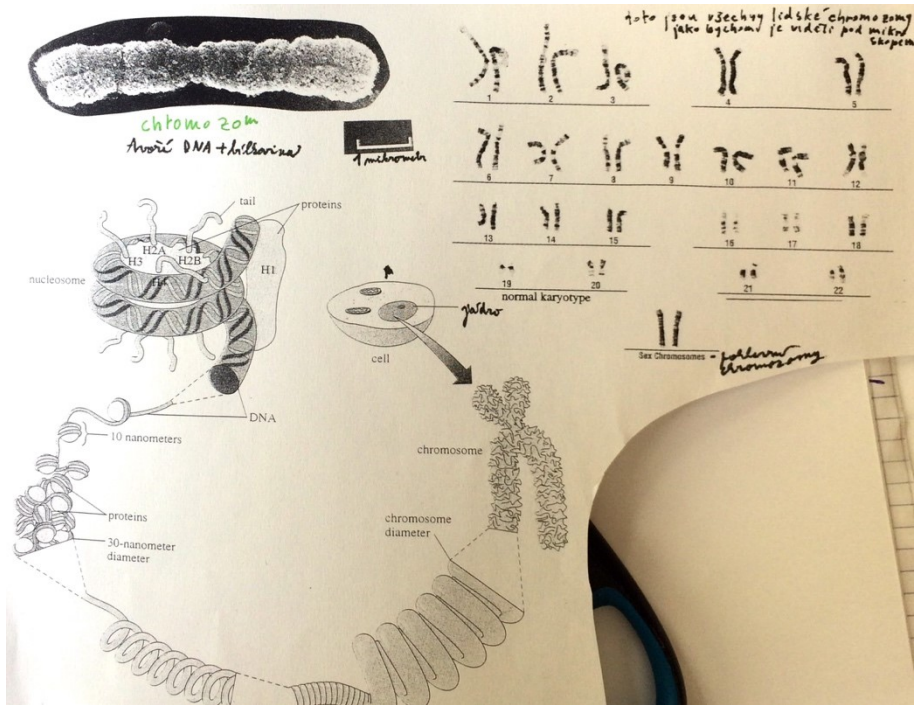 toto jsou všechny lidské chromozomy
jako bychom je viděli pod mikro
skopem
chromozom
tvoří DNA + bílkovina
1 mikrometr
1 2 3 4 5
6 7 8 9 10 11 12
13 14 15 16 17 18
19 20 21 22
normal karyotype
Sex Chromosomes - pohlavní
chromozomy
tail
proteins
H2A
H3 H2B
H4
H1
nucleosome
jádro
cell
DNA
10 nanometers
chromosome
proteins
chromosome
diameter
30-nanometer
diameter